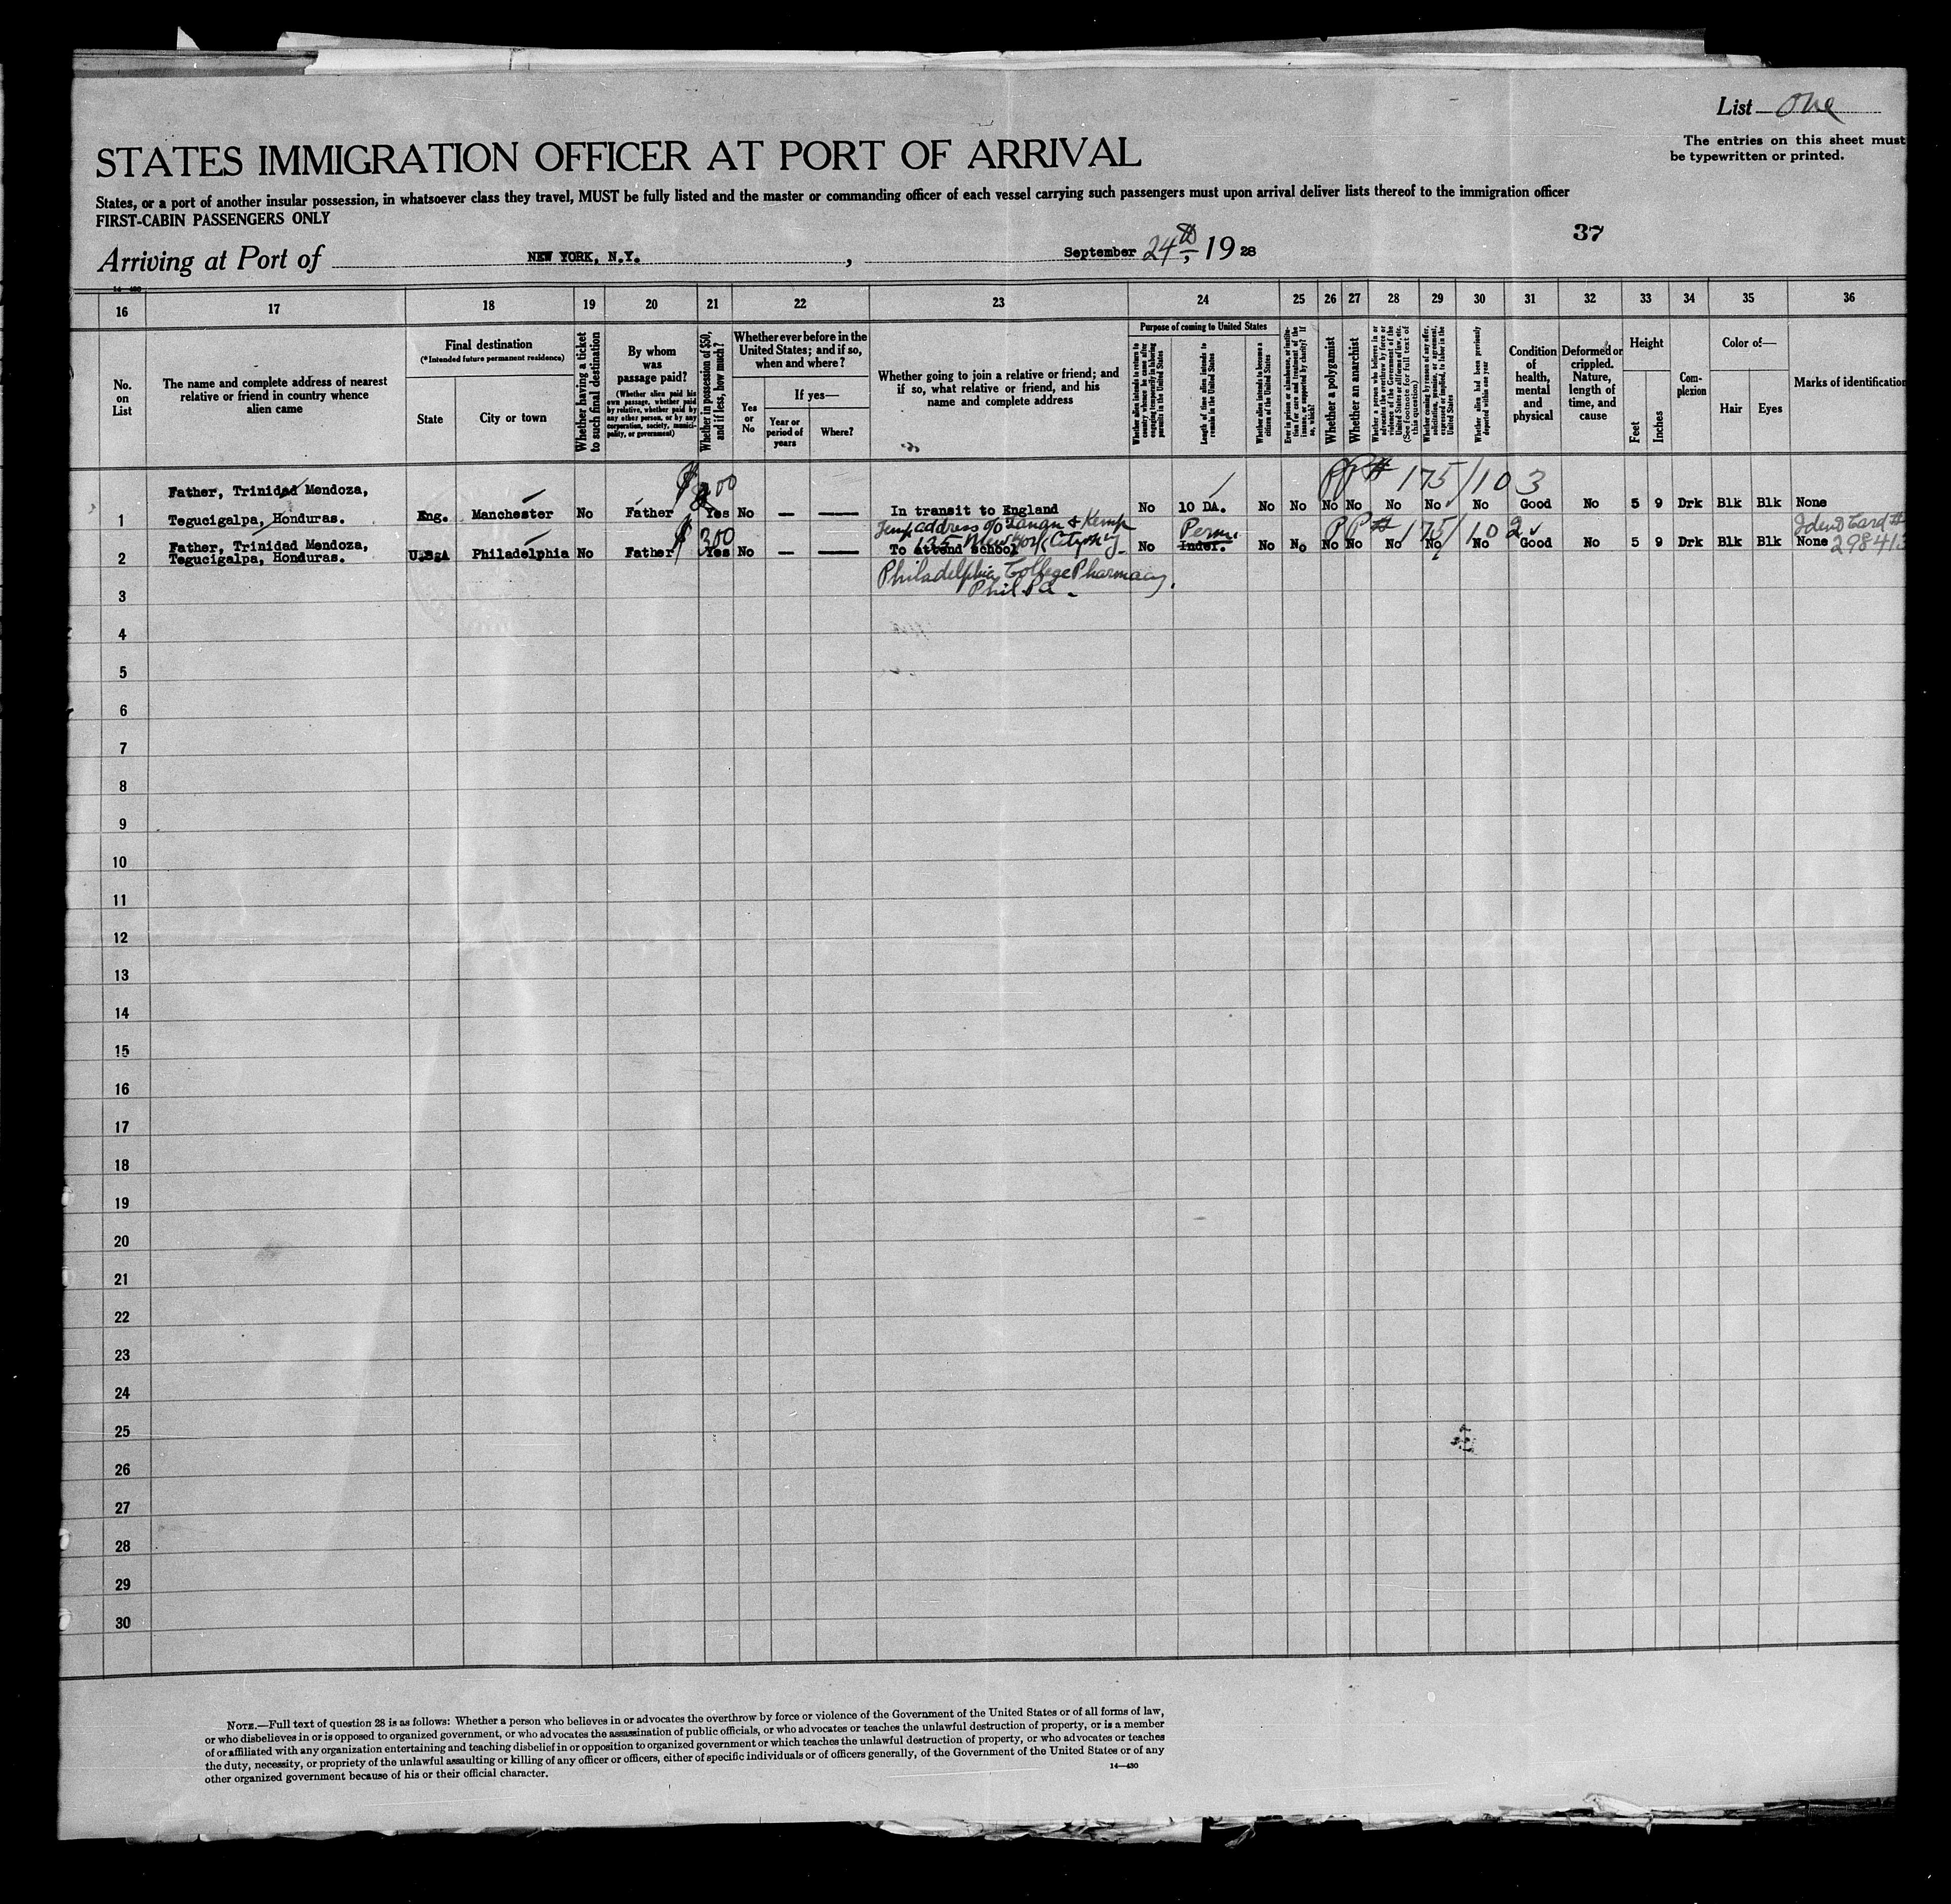 List One
The entries on this sheet must
be typewritten or printed.
STATES IMMIGRATION OFFICER AT PORT OF ARRIVAL
States, or a port of another insular possession, in whatsoever class they travel, MUST be fully listed and the master or commanding officer of each vessel carrying such passengers must upon arrival deliver lists thereof to the immigration officer
FIRST-CABIN PASSENGERS ONLY
37
Arriving at Port of NEW YORK, N.Y. , September 24th, 19 28
16 17 18 19 20 21 22 23 24 25 26 27 28 29 30 31 32 33 34 35 36
No. on List
The name and complete address of nearest relative or friend in country whence alien came
Final destination
(*Intended future permanent residence)
State
City or town
Whether having a ticket to such final destination
By whom was passage paid?
(Whether alien paid his own passage, whether paid by relative, whether paid by any other person, or by any corporation, society, municipality, or government)
Whether in possession of $50, and if less, how much?
Whether ever before in the United States; and if so, when and where?
Yes or No
If yes—
Year or period of years
Where?
Whether going to join a relative or friend; and if so, what relative or friend, and his name and complete address
Purpose of coming to United States
Whether alien intends to return to country whence he came after engaging temporarily in laboring pursuits in the United States
Length of time alien intends to remain in the United States
Whether alien intends to become a citizen of the United States
Ever in prison or almshouse, or institution for care and treatment of the insane, or supported by charity? If so, which?
Whether a polygamist
Whether an anarchist
Whether a person who believes in or advocates the overthrow by force or violence of the Government of the United States or all forms of law, etc. (See footnote for full text of this question)
Whether coming by reason of any offer, solicitation, promise, or agreement, expressed or implied, to labor in the United States
Whether alien had been previously deported within one year
Condition of health, mental and physical
Deformed or crippled. Nature, length of time, and cause
Height
Feet
Inches
Complexion
Color of—
Hair
Eyes
Marks of identification
$200 PP# 175/103
1 Father, Trinidad Mendoza, Tegucigalpa, Honduras. Eng. Manchester No Father Yes No — — In transit to England No 10 DA. No No No No No No No Good No 5 9 Drk Blk Blk None
Temp address c/o Lanan & Kemp
135 City
$300 Perm. PP# 175/102 Ident Card # 298413
2 Father, Trinidad Mendoza, Tegucigalpa, Honduras. U.S.A Philadelphia No Father Yes No — — To attend school No Indef. No No No No No No No Good No 5 9 Drk Blk Blk None
Philadelphia College Pharmacy.
Phil Pa.
3
4
5
6
7
8
9
10
11
12
13
14
15
16
17
18
19
20
21
22
23
24
25
26
27
28
29
30
NOTE.—Full text of question 28 is as follows: Whether a person who believes in or advocates the overthrow by force or violence of the Government of the United States or of all forms of law,
or who disbelieves in or is opposed to organized government, or who advocates the assassination of public officials, or who advocates or teaches the unlawful destruction of property, or is a member
of or affiliated with any organization entertaining and teaching disbelief in or opposition to organized government or which teaches the unlawful destruction of property, or who advocates or teaches
the duty, necessity, or propriety of the unlawful assaulting or killing of any officer or officers, either of specific individuals or of officers generally, of the Government of the United States or of any
other organized government because of his or their official character.
14—430